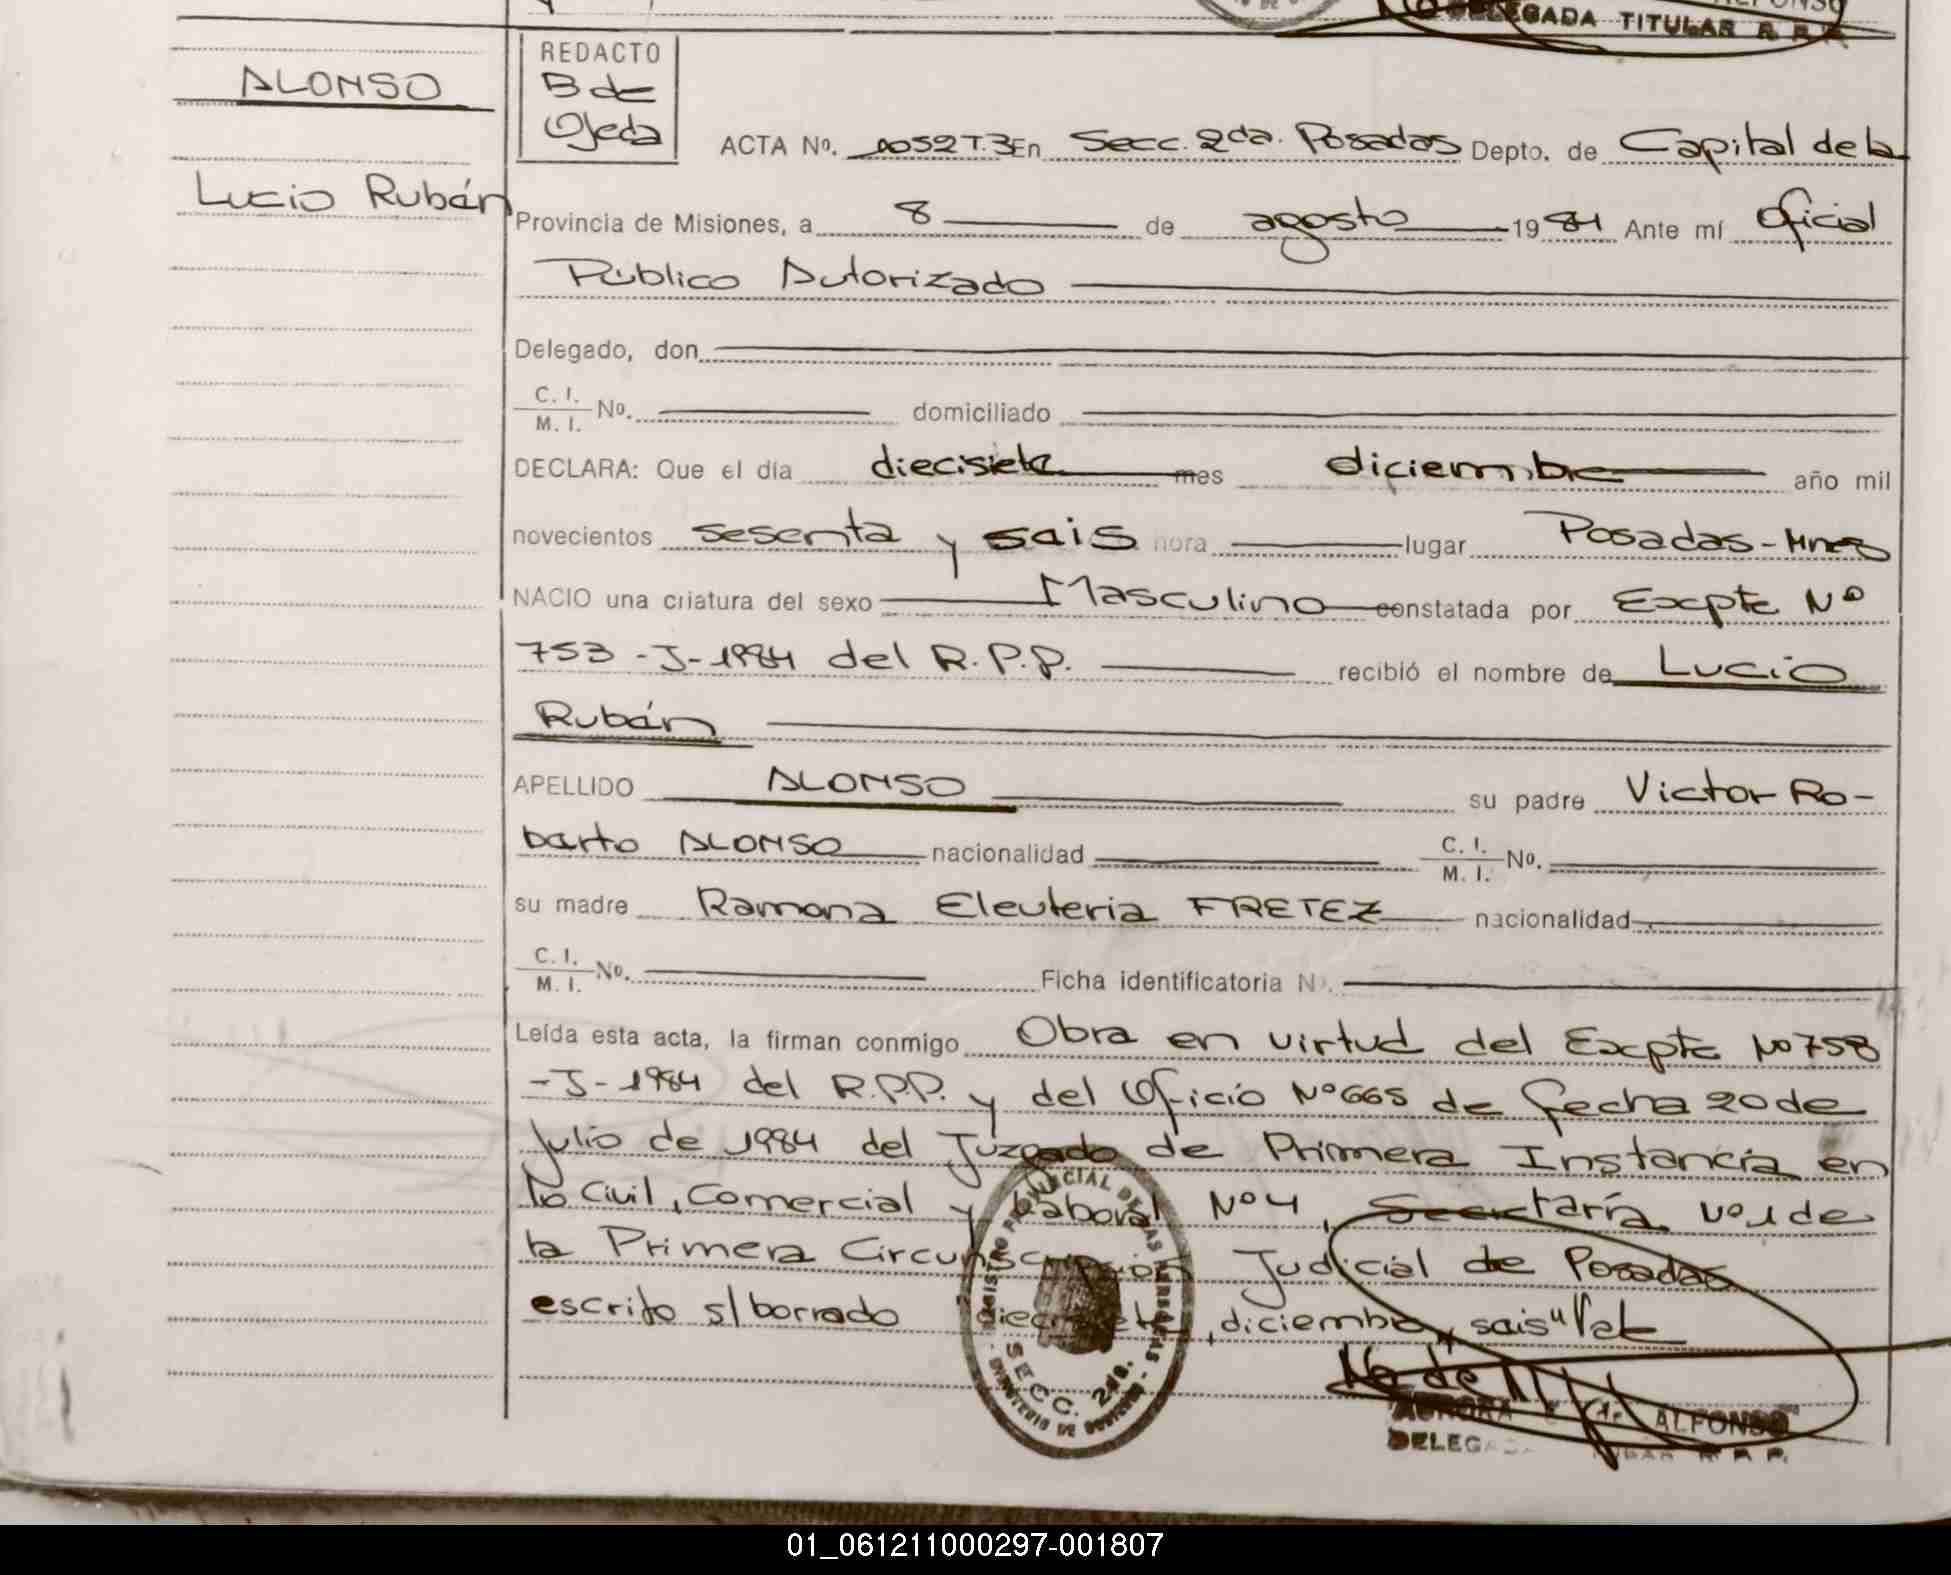 DELEGADA TITULAR R. P. P.
ALONSO
Lucio Rubán
REDACTO
B de
Ojeda
ACTA Nº. 0052 T.3 En Secc. 2da. Posadas Depto. de Capital de la
Provincia de Misiones, a 8 de agosto 1984 Ante mí Oficial
Público Autorizado
Delegado, don
C. I. / M. I. Nº. domiciliado
DECLARA: Que el día diecisiete mes diciembre año mil
novecientos sesenta y sais hora lugar Posadas - Mnes
NACIO una criatura del sexo Masculino constatada por Expte Nº
753 - J - 1984 del R.P.P. recibió el nombre de Lucio
Rubán
APELLIDO ALONSO su padre Victor Ro-
barto ALONSO nacionalidad C. I. / M. I. Nº.
su madre Ramona Eleuteria FRETEZ nacionalidad
C. I. / M. I. Nº. Ficha identificatoria Nº.
Leída esta acta, la firman conmigo Obra en virtud del Expte Nº 758
- J - 1984 del R.P.P. y del Oficio Nº 665 de fecha 20 de
Julio de 1984 del Juzgado de Primera Instancia en
lo Civil, Comercial y Laboral Nº 4, Secretaría Nº 1 de
la Primera Circunscripción Judicial de Posadas
escrito s/ borrado "diecisiete, diciembre, sais" Vale
REGISTRO PROVINCIAL DE LAS PERSONAS - MINISTERIO DE GOBIERNO -
SECC. 2da.
AURORA ALFONSO
DELEGADA TITULAR R. P. P.
01_061211000297-001807